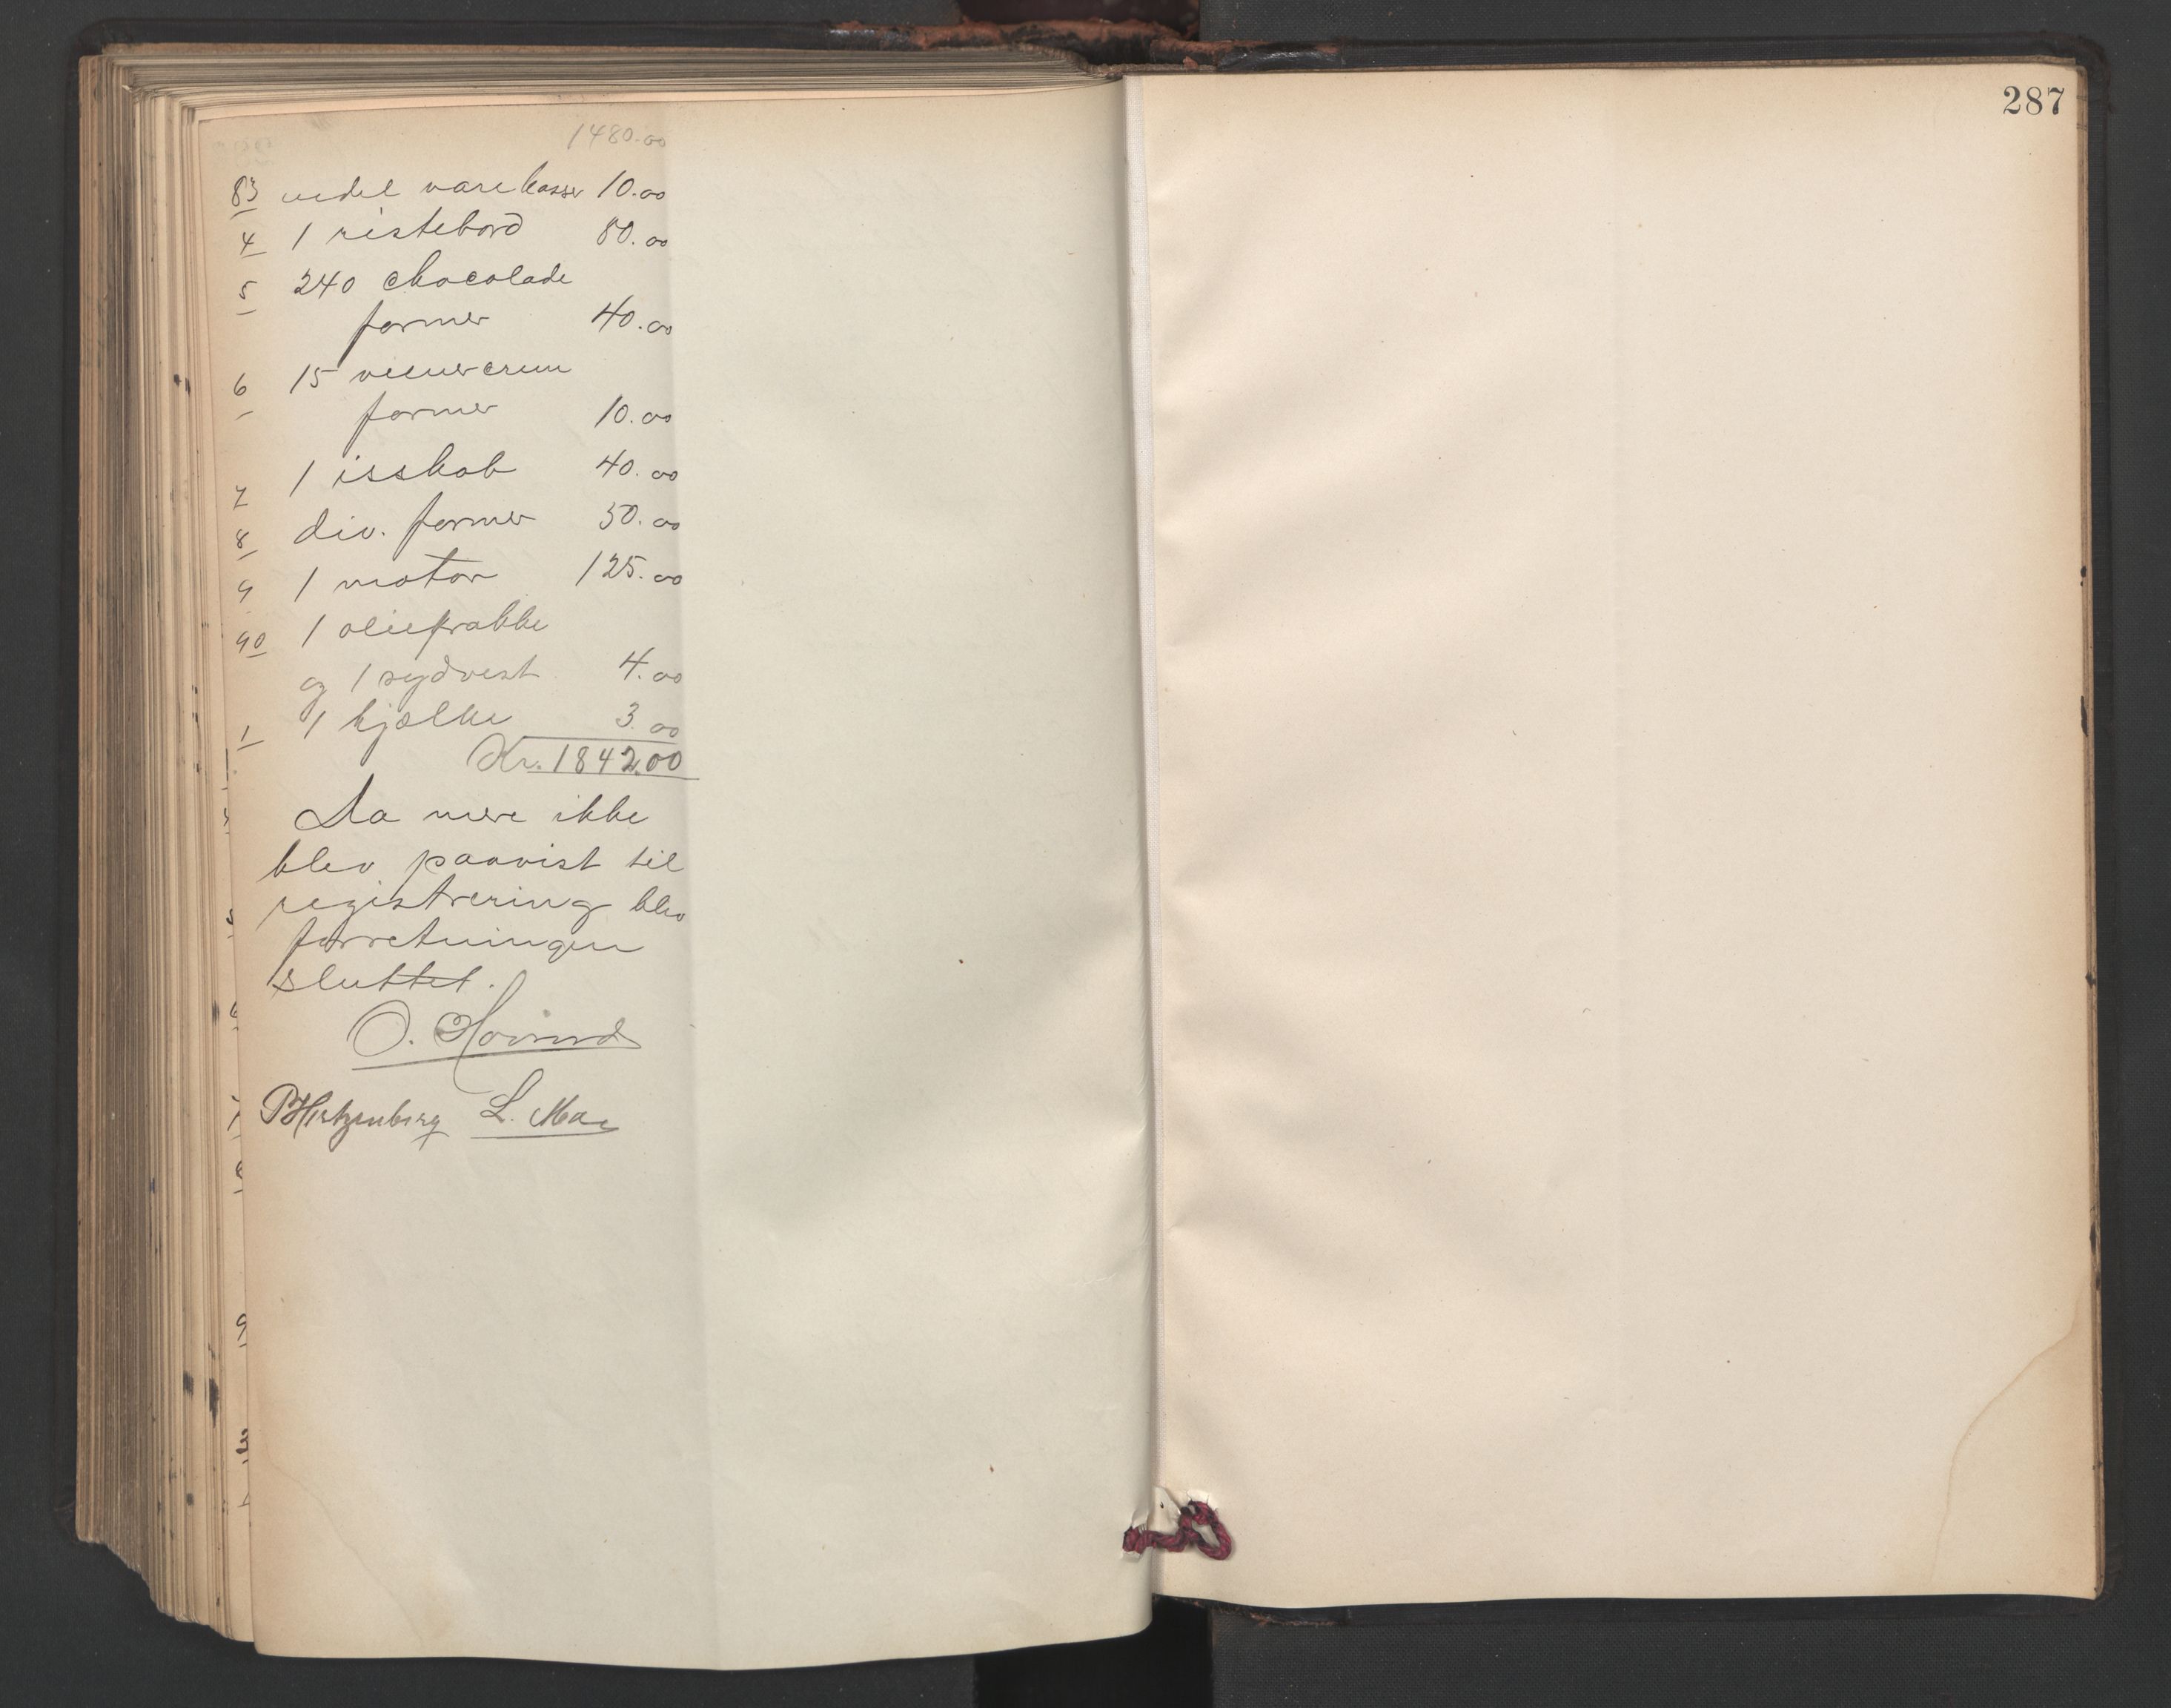 1480.00
83 vedel varekasser 10.00
4 1 ristebord 80.00
5 240 chocolade
former 40.00
6 15
former 10.00
7 1 isskab 40.00
8 div. former 50.00
9 1 motor 125.00
90 1 oliefrakke
og 1 sydvest 4.00
1 1 kjælke 3.00
Kr. 1842.00
Da mere ikke
blev paavist til
registrering blev
forretningen
sluttet.
O.
PHirtzenberg L. Moe
287